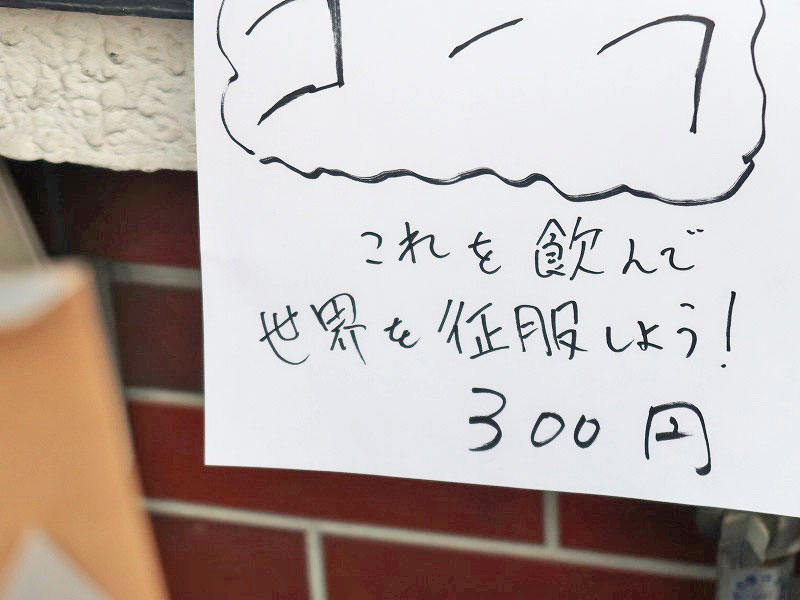 これを飲んで
世界を征服しよう!
300円